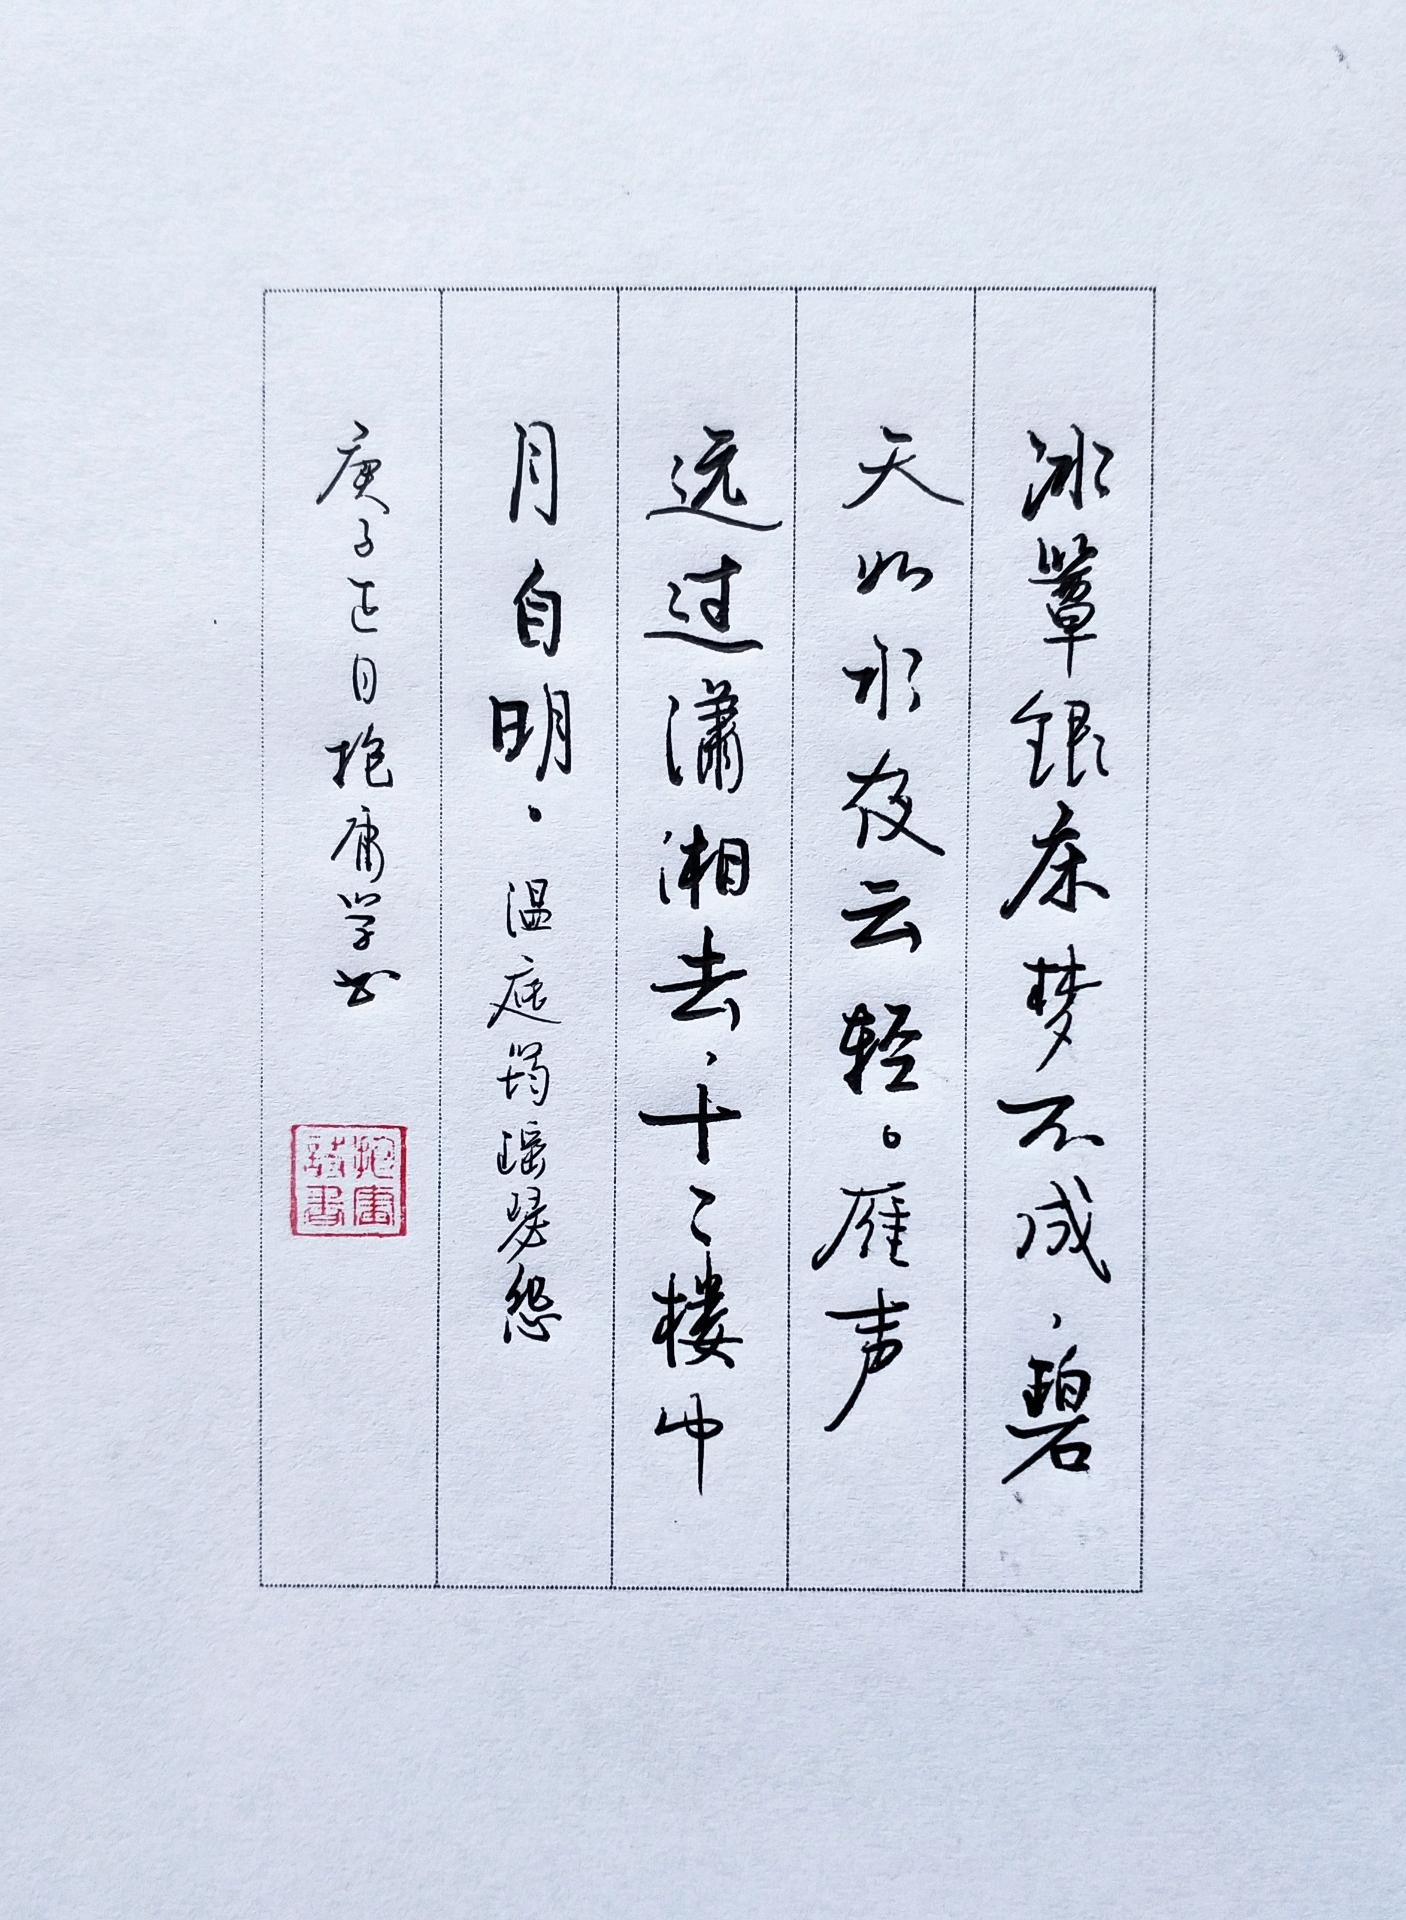 冰簟银床梦不成，碧
天如水夜云轻。雁声
远过潇湘去，十二楼中
月自明。温庭筠瑶瑟怨
庚子正月抱庸学书